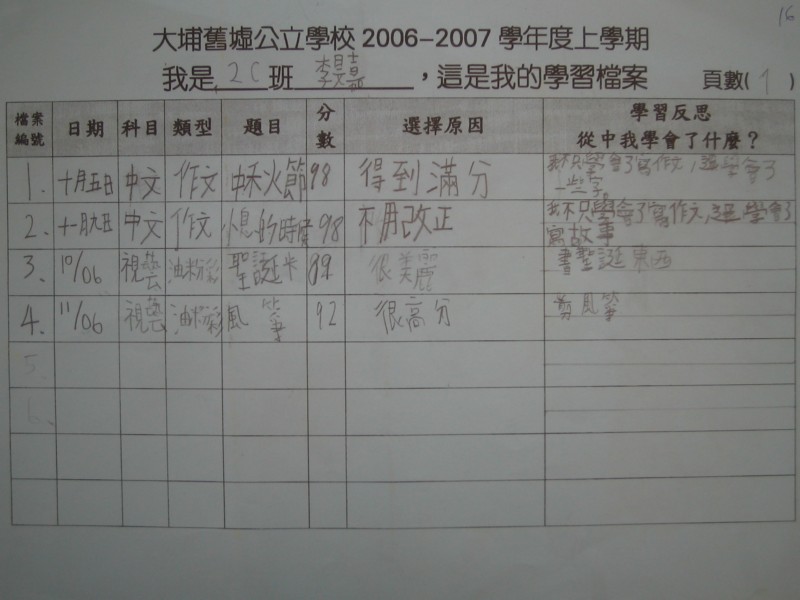 16
大埔舊墟公立學校 2006-2007 學年度上學期
我是 2C 班 李昊嘉 ，這是我的學習檔案 頁數( 1 )
檔案編號 日期 科目 類型 題目 分數 選擇原因 學習反思 從中我學會了什麼？
1. 十月五日 中文 作文 中秋火節 98 得到滿分 我不只學會了寫作文，還學會了
一些字。
2. 十一月九日 中文 作文 小息的時候 98 不用改正 我不只學會了寫作文，還學會了
寫故事
3. 10/06 視藝 油粉彩 聖誕卡 89 很美麗 畫聖誕東西
4. 11/06 視藝 油粉彩 風箏 92 很高分 剪風箏
5.
6.